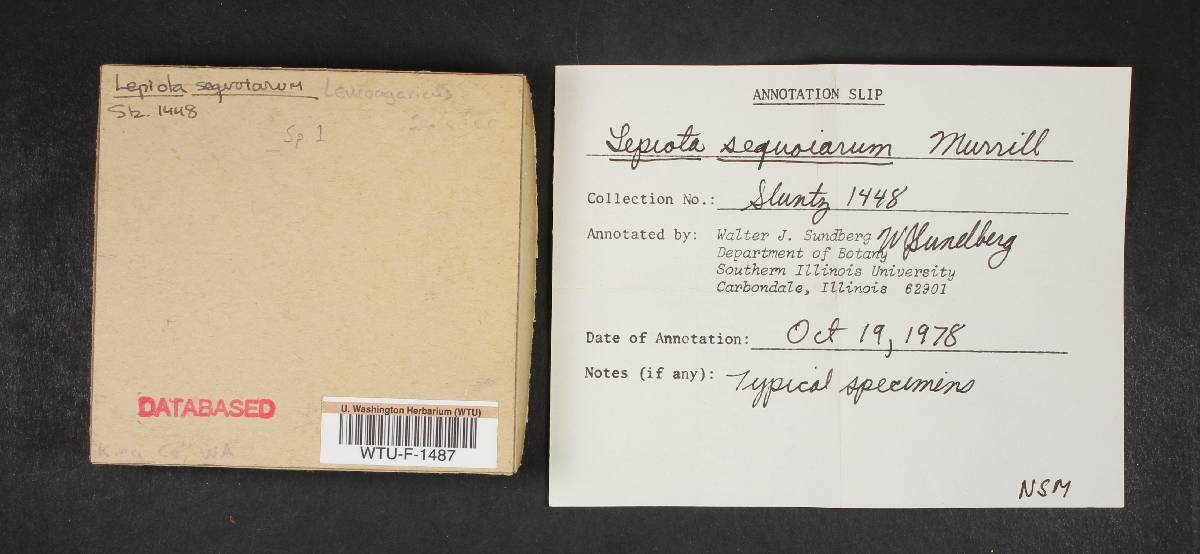 Lepiota sequoiarum Leucoagaricus
Stz. 1448
Sp 1
DATABASED
U. Washington Herbarium (WTU)
WTU-F-1487
King Co, WA
ANNOTATION SLIP
Lepiota sequoiarum Murrill
Collection No.: Sluntz 1448
Annotated by: Walter J. Sundberg WJSundberg
Department of Botany
Southern Illinois University
Carbondale, Illinois 62901
Date of Annotation: Oct 19, 1978
Notes (if any): Typical specimens
NSM